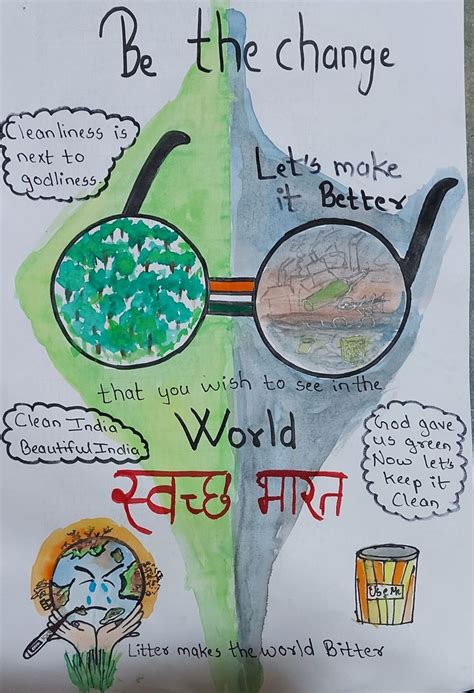 Be the change
Cleanliness is
next to
godliness.
Let's make
it Better
that you wish to see in the
World
Clean India
Beautiful India
God gave
us green
Now let's
keep it
Clean
स्वच्छ भारत
Use Me
Litter makes the world Bitter